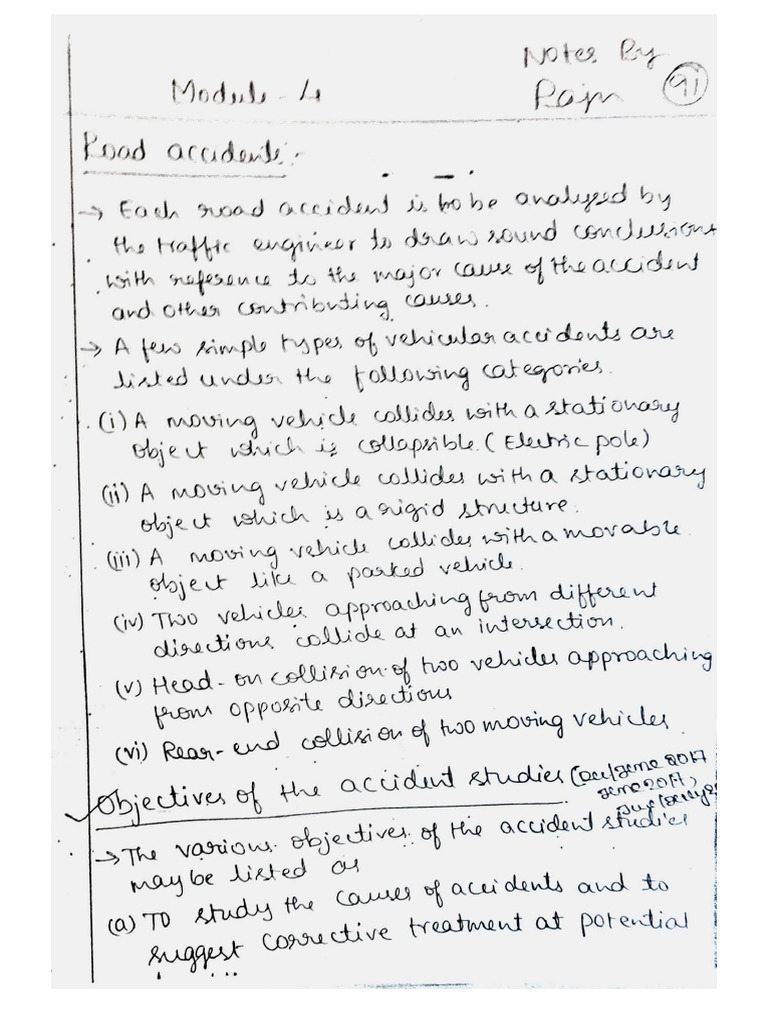 Notes By
Module - 4
91
Road accidents:-
→ Each road accident is to be analysed by
the traffic engineer to draw sound conclusions
with reference to the major cause of the accident
and other contributing causes.
→ A few simple types of vehicular accidents are
listed under the following categories.
(i) A moving vehicle collides with a stationary
object which is collapsible. (Electric pole)
(ii) A moving vehicle collides with a stationary
object which is a rigid structure.
(iii) A moving vehicle collides with a movable
object like a parked vehicle.
(iv) Two vehicles approaching from different
directions collide at an intersection.
(v) Head-on collision of two vehicles approaching
from opposite directions
(vi) Rear-end collision of two moving vehicles
Objectives of the accident studies (Dec/June 2017
June 2017)
→ The various objectives of the accident studies
may be listed as
(a) To study the causes of accidents and to
suggest corrective treatment at potential